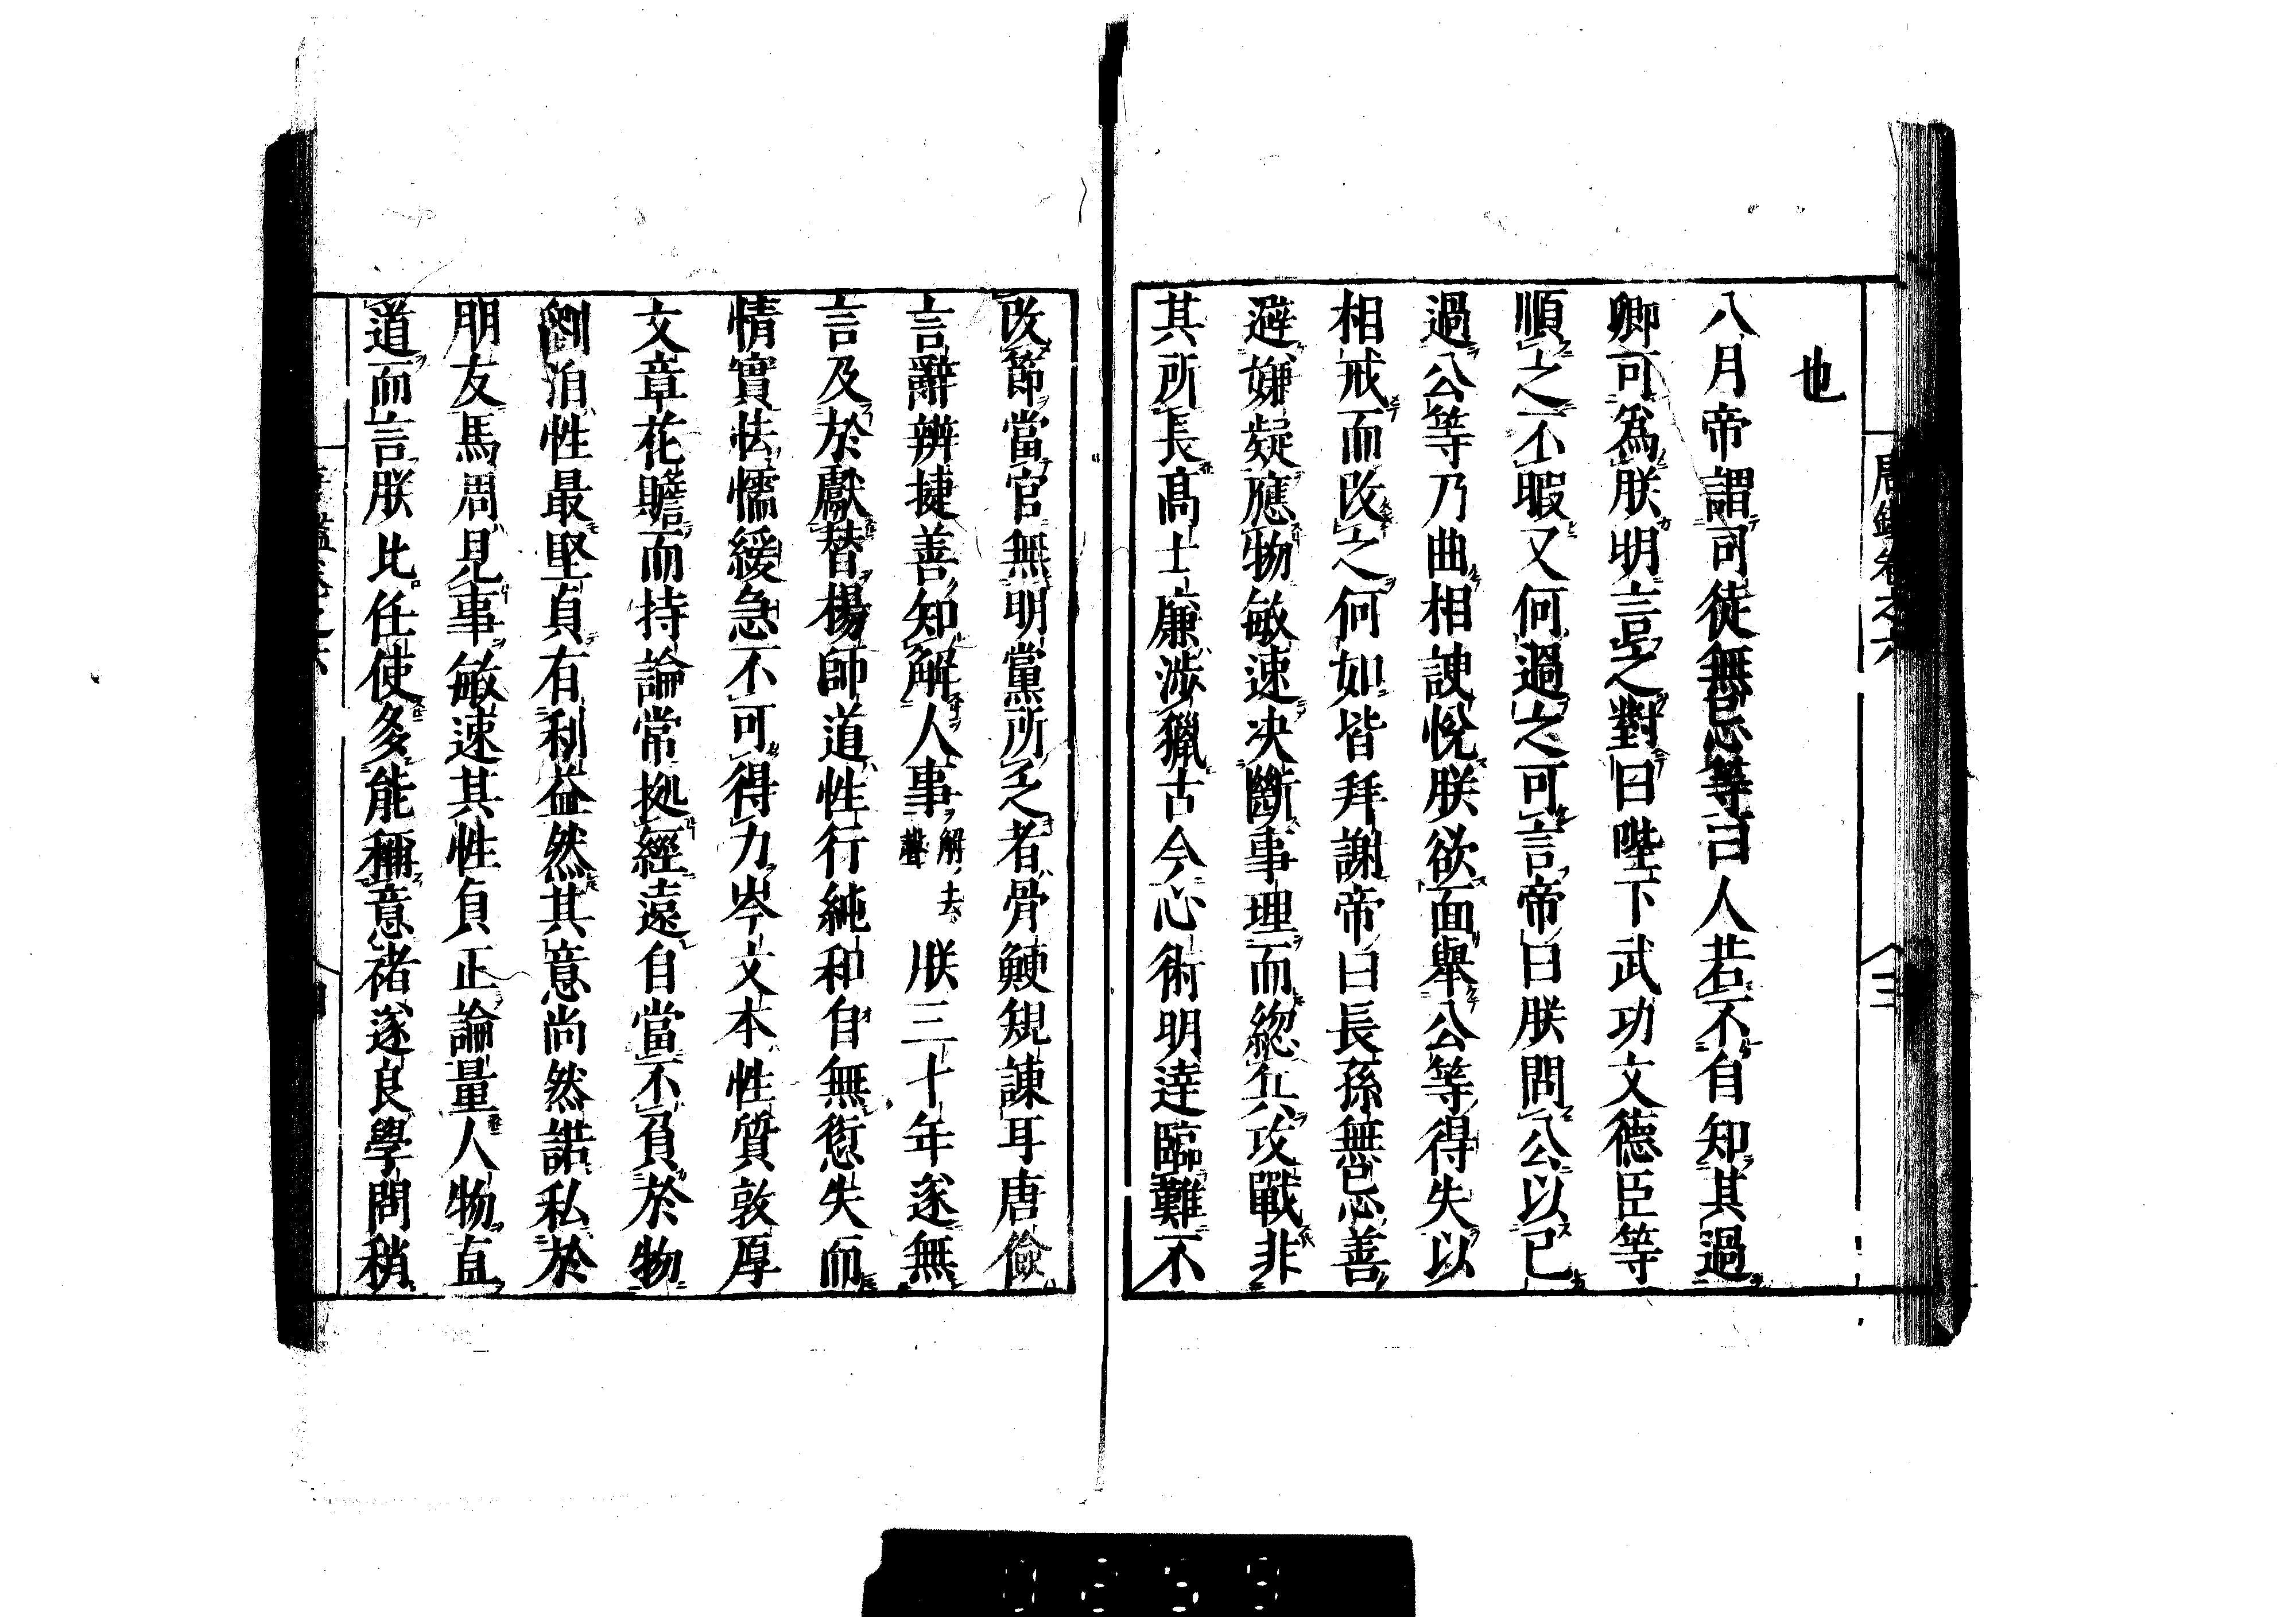 唐鑑卷之六
三
也
八月帝謂司徒無忌等曰人若不自知其過
卿可為朕明言之對曰陛下武功文德臣等
順之不暇又何過之可言帝曰朕問公以已
過公等乃曲相諛悅朕欲面舉公等得失以
相戒而改之何如皆拜謝帝曰長孫無忌善
避嫌疑應物敏速決斷事理而總兵攻戰非
其所長高士廉涉獵古今心術明達臨難不
改節當官無朋黨所乏者骨鯁規諫耳唐儉
言辭辨捷善知解人事解去聲朕三十年遂無
言及於獻替楊師道性行純和自無愆失而
情實怯懦緩急不可得力岑文本性質敦厚
文章花贍而持論常據經遠自當不負於物
劉洎性最堅貞有利益然其意尚然諾私於
朋友馬周見事敏速其性貞正論量人物直
道而言朕比任使多能稱意褚遂良學問稍